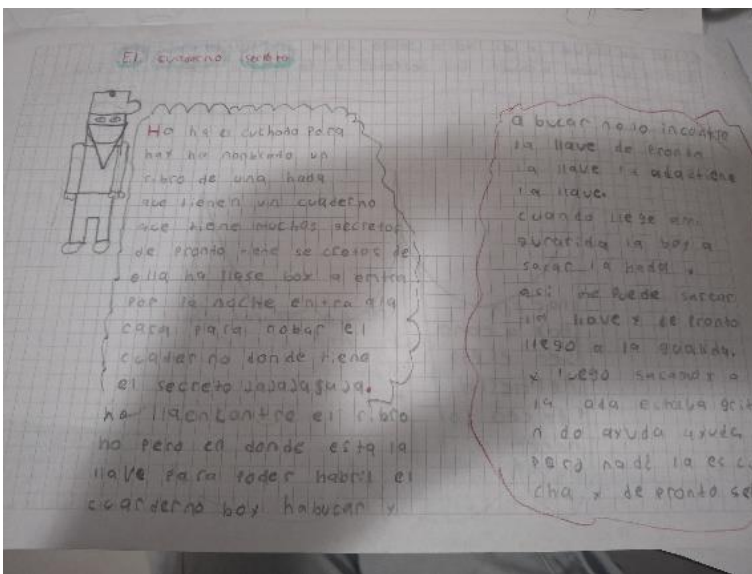 El cuaderno secreto
Ha ha e cuchado para
hay ha nonbrado un
ribro de una hada
que tienen un cuaderno
que tiene muchos secretos
de pronto tiene se cretos de
ella ha llase box a entra
por la noche entra ala
casa para robar el
cuader no donde tiene
el secreto jajajaguja.
ha llaencontre el ribro
no pero en donde esta la
llave para poder habrir el
cuarderno box habucar x
a bucar no lo incontre
la llave de pronto
la llave la adactiene
la llave.
cuando llege am
guratida la box a
sacar la hada.
asi me puede sarcar
la llave x de pronto
llego a la guarida.
x luego sacamor a
la ada echaba grit
n do axuda axuda
pero nade la es cu
cha x de pronto se